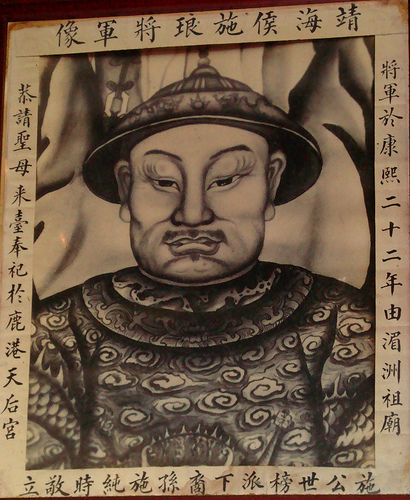 靖海侯施琅將軍像
將軍於康熙二十二年由湄洲祖廟
恭請聖母來臺奉祀於鹿港天后宮
施公世榜派下裔孫施純時敬立